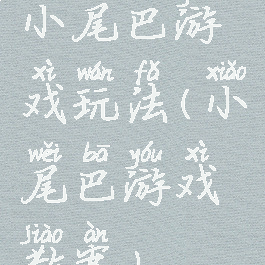 小尾巴游
xì wán fǎ xiǎo
戏玩法(小
wěi bā yóu xì
尾巴游戏
jiào àn
教案)